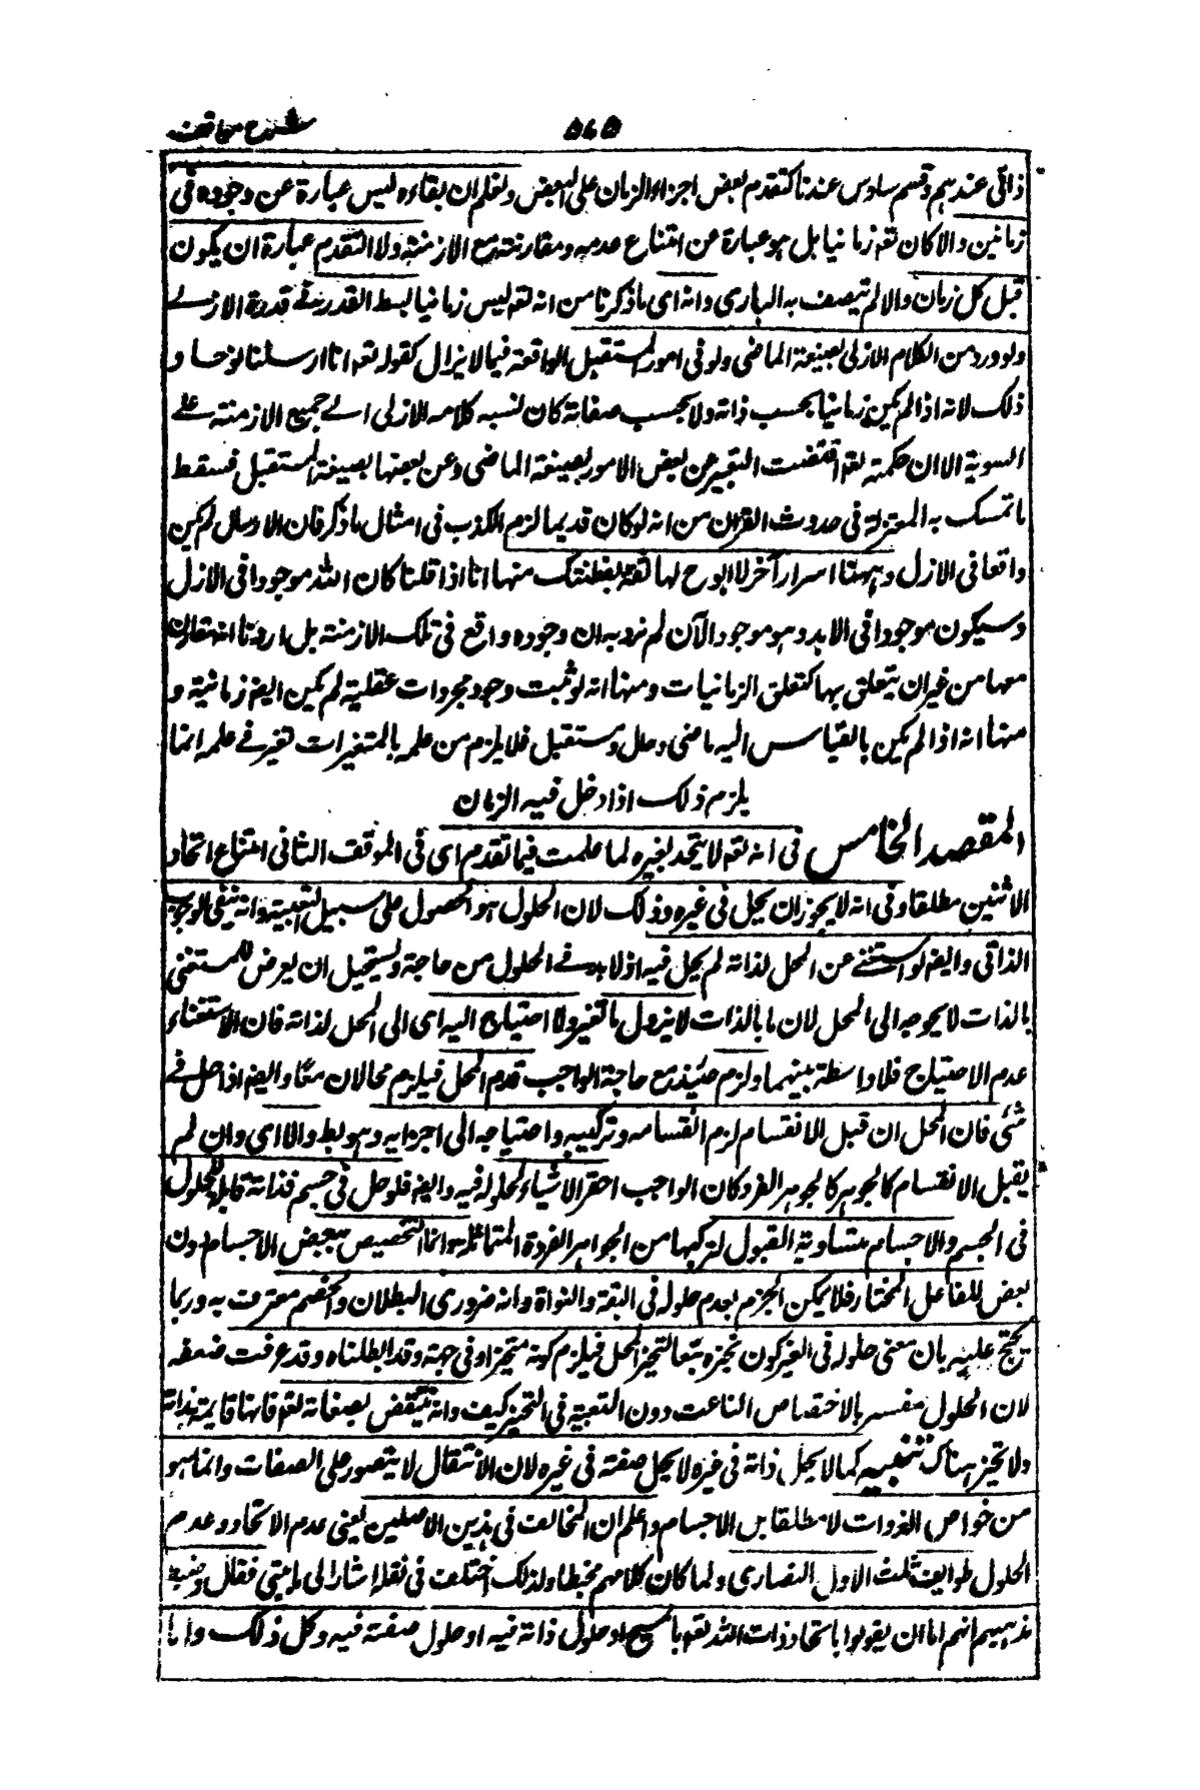 ۵۶۵ شرح مواقف
ذاتى عندهم وقسم سادس عندنا كتقدم بعض اجزاء الزمان على البعض ونعلم ان بقاءه ليس عبارة عن وجوده فى
زمانين والا كان تعه زمانيا بل هو عبارة عن امتناع عدمه ومقارنته مع الازمنة ولا التقدم عبارة ان يكون
قبل كل زمان والا لم يتصف به البارى وانه اى ما ذكرنا من انه تعه ليس زمانيا يبسط العذر فى قدرة الازلے
ولو ورد من الكلام الازلى بصيغة الماضى ولو فى امور المستقبل الواقعة فيما لا يزال كقوله تعه انا ارسلنا نوحا و
ذلك لانه اذا لم يكن زمانيا بحسب ذاته ولا بحسب صفاته كان نسبه كلامه الازلى الے جميع الازمنة علے
السوية الا ان حكمته تعه اقتضت التعبير عن بعض الامور بصيغة الماضى وعن بعضها بصيغة المستقبل فسقط
ما تمسك به المعتزلة فى حدوث القران من انه لو كان قديما لزم الكذب فى امثال ما ذكر فان الارسال لم يكن
واقعا فى الازل وههنا اسرار آخر لا ابوح لها ثقة بفطنتك منها انا اذا قلنا كان الله موجودا فى الازل
وسيكون موجودا فى الابد وهو موجود الآن لم نرد به ان وجوده واقع فى تلك الازمنة بل اردنا انه مقارن
معها من غير ان يتعلق بها كتعلق الزمانيات ومنها انه لو ثبت وجود مجردات عقلية لم يكن ايضه زمانية و
منها انه اذا لم يكن بالقياس اليه ماضى وحال ومستقبل فلا يلزم من علمه بالمتغيرات تغير فے علمه انما
يلزم ذلك اذا دخل فيه الزمان
المقصد الخامس فى انه تعه لا يتحد بغيره لما علمت فيما تقدم اى فى الموقف الثانى امتناع اتحاد
الاثنين مطلقا وفى انه لا يجوز ان يحل فى غيره وذلك لان الحلول هو الحصول على سبيل التبعية وانه ينفى الوجوب
الذاتى وايضه لو استغنے عن المحل لذاته لم يحل فيه اذ لا بد فے الحلول من حاجة ويستحيل ان يعرض للمستغنى
بالذات لا يحوجه الى المحل لان ما بالذات لا يزول بالغير ولا احتياج اليه اى الى المحل لذاته فان الاستغناء
عدم الاحتياج فلا واسطة بينهما ولزم حينئذ مع حاجة الواجب قدم المحل فيلزم محالان معًا وايضه اذا حل فے
شئ فان المحل ان قبل الانقسام لزم انقسامه وتركيبه واحتياجه الى اجزايه وهو بط والا اى وان لم
يقبل الانقسام كالجوهر كالجوهر الفرد كان الواجب احقر الاشياء لحلوله فيه وايضه فلو حل فى جسم فذاته قابلة للحلول
فى الجسم والاجسام متساوية القبول لتركبها من الجواهر الفردة المتماثلة وانما التخصيص ببعض الاجسام دون
بعض للفاعل المختار فلا يمكن الجزم بعدم حلوله فى البقة والنواة وانه ضرورى البطلان والخصم معترف به وربما
يحتج عليه بان معنى حلوله فى الغير كون تحيزه تبعا لتحيز المحل فيلزم كونه متحيزا وفى جهة وقد ابطلناه وقد عرفت ضعفه
لان الحلول مفسر بالاختصاص الناعت دون التبعية فى التحيز كيف وانه ينتقض بصفاته تعه فانها قايمة بذاته
ولا تحيز هناك تنبيه كما لا يحل ذاته فى غيره لا يحل صفته فى غيره لان الانتقال لا يتصور على الصفات وانما هو
من خواص الذوات لا مطلقا بل الاجسام واعلم ان المخالف فى هذين الاصلين يعنى عدم الاتحاد وعدم
الحلول طوايف ثلث الاول النصارى ولما كان كلامهم مخبطا ولذلك اختلف فى نقله اشار الى ما يبنى فقال وضبط
مذهبهم انهم اما ان يقولوا باتحاد ذات الله تعه بالمسيح او حلول ذاته فيه او حلول صفته فيه وكل ذلك واما